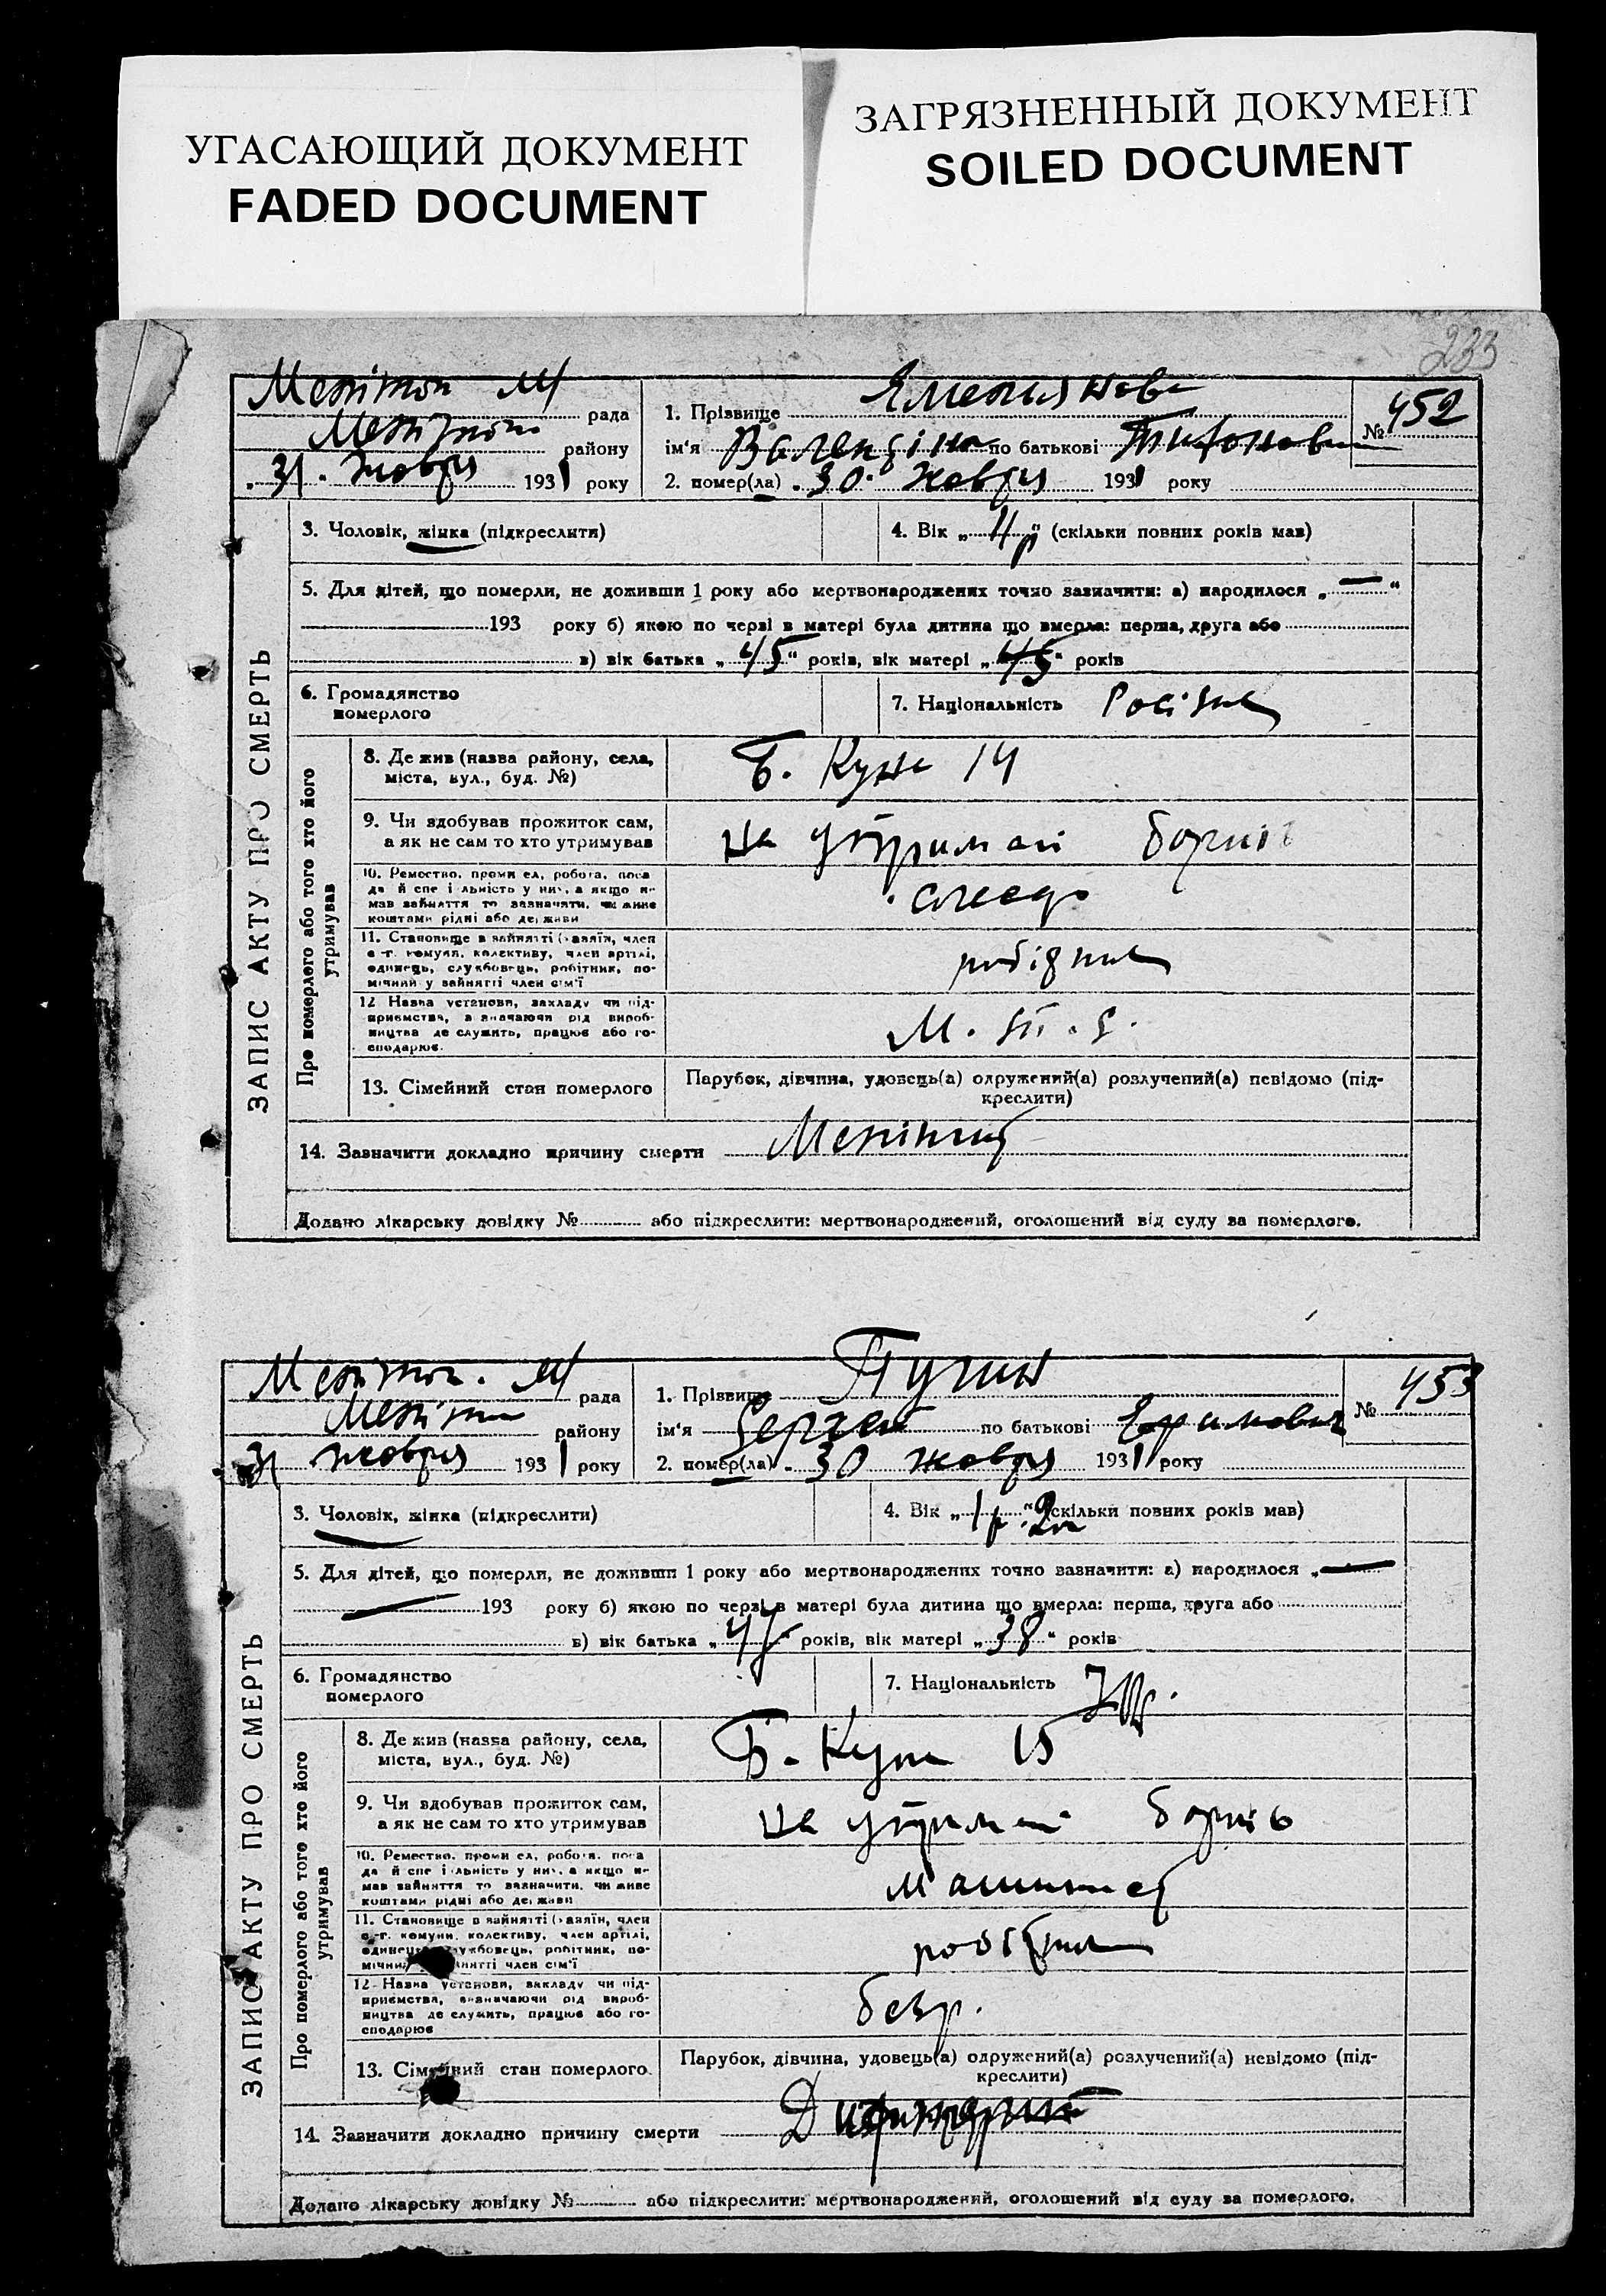 УГАСАЮЩИЙ ДОКУМЕНТ
FADED DOCUMENT
ЗАГРЯЗНЕННЫЙ ДОКУМЕНТ
SOILED DOCUMENT
233
ЗАПИС АКТУ ПРО СМЕРТЬ
рада
району
31. жовтня 1931 року
1. Прізвище
ім'я Валентіна по батькові
№ 452
2. помер(ла) 30. жовтня 1931 року
3. Чоловік, жінка (підкреслити)
4. Вік „4 р“ (скільки повних років мав)
5. Для дітей, що померли, не доживши 1 року або мертвонароджених точно зазначити: а) народилося „—“
193 року б) якою по черзі в матері була дитина що вмерла: перша, друга або
в) вік батька „45“ років, вік матері „45“ років
6. Громадянство померлого
7. Національність
Про померлого або того хто його утримував
8. Де жив (назва району, села, міста, вул., буд. №)
Б. Куна 14
9. Чи здобував прожиток сам, а як не сам то хто утримував
на утриман батьків
10. Ремество, промисел, робота, посада й спеціальність у них, а якщо не мав зайняття то зазначити, чи живе коштами рідні або держави
слесар
11. Становище в зайнятті (хазяїн, член с.-г. комуни, колективу, член артілі, одинець, службовець, робітник, помічний у зайнятті член сім'ї
робітник
12 Назва установи, закладу чи підприємства, зазначаючи рід виробництва де служить, працює або господарює.
13. Сімейний стан померлого
Парубок, дівчина, удовець(а) одружений(а) розлучений(а) невідомо (підкреслити)
14. Зазначити докладно причину смерти
Менінгит
Додано лікарську довідку № або підкреслити: мертвонароджений, оголошений від суду за померлого.
ЗАПИС АКТУ ПРО СМЕРТЬ
рада
району
31 жовтня 1931 року
1. Прізвище
ім'я Сергей по батькові
№ 453
2. помер(ла) 30 жовтня 1931 року
3. Чоловік, жінка (підкреслити)
4. Вік „1 р. 2м“ (скільки повних років мав)
5. Для дітей, що померли, не доживши 1 року або мертвонароджених точно зазначити: а) народилося „—
193 року б) якою по черзі в матері була дитина що вмерла: перша, друга або
в) вік батька „ “ років, вік матері „38“ років
6. Громадянство померлого
7. Національність Укр.
Про померлого або того хто його утримував
8. Де жив (назва району, села, міста, вул., буд. №)
Б. Куна 15
9. Чи здобував прожиток сам, а як не сам то хто утримував
на утриман батьків
10. Ремество, промисел, робота, посада й спеціальність у них, а якщо не мав зайняття то зазначити, чи живе коштами рідні або держави
машинист
11. Становище в зайнятті (хазяїн, член с.-г. комуни, колективу, член артілі, одинець, службовець, робітник, помічний у зайнятті член сім'ї
робітник
12 Назва установи, закладу чи підприємства, зазначаючи рід виробництва де служить, працює або господарює
безр.
13. Сімейний стан померлого
Парубок, дівчина, удовець(а) одружений(а) розлучений(а) невідомо (підкреслити)
14. Зазначити докладно причину смерти
Додано лікарську довідку № або підкреслити: мертвонароджений, оголошений від суду за померлого.